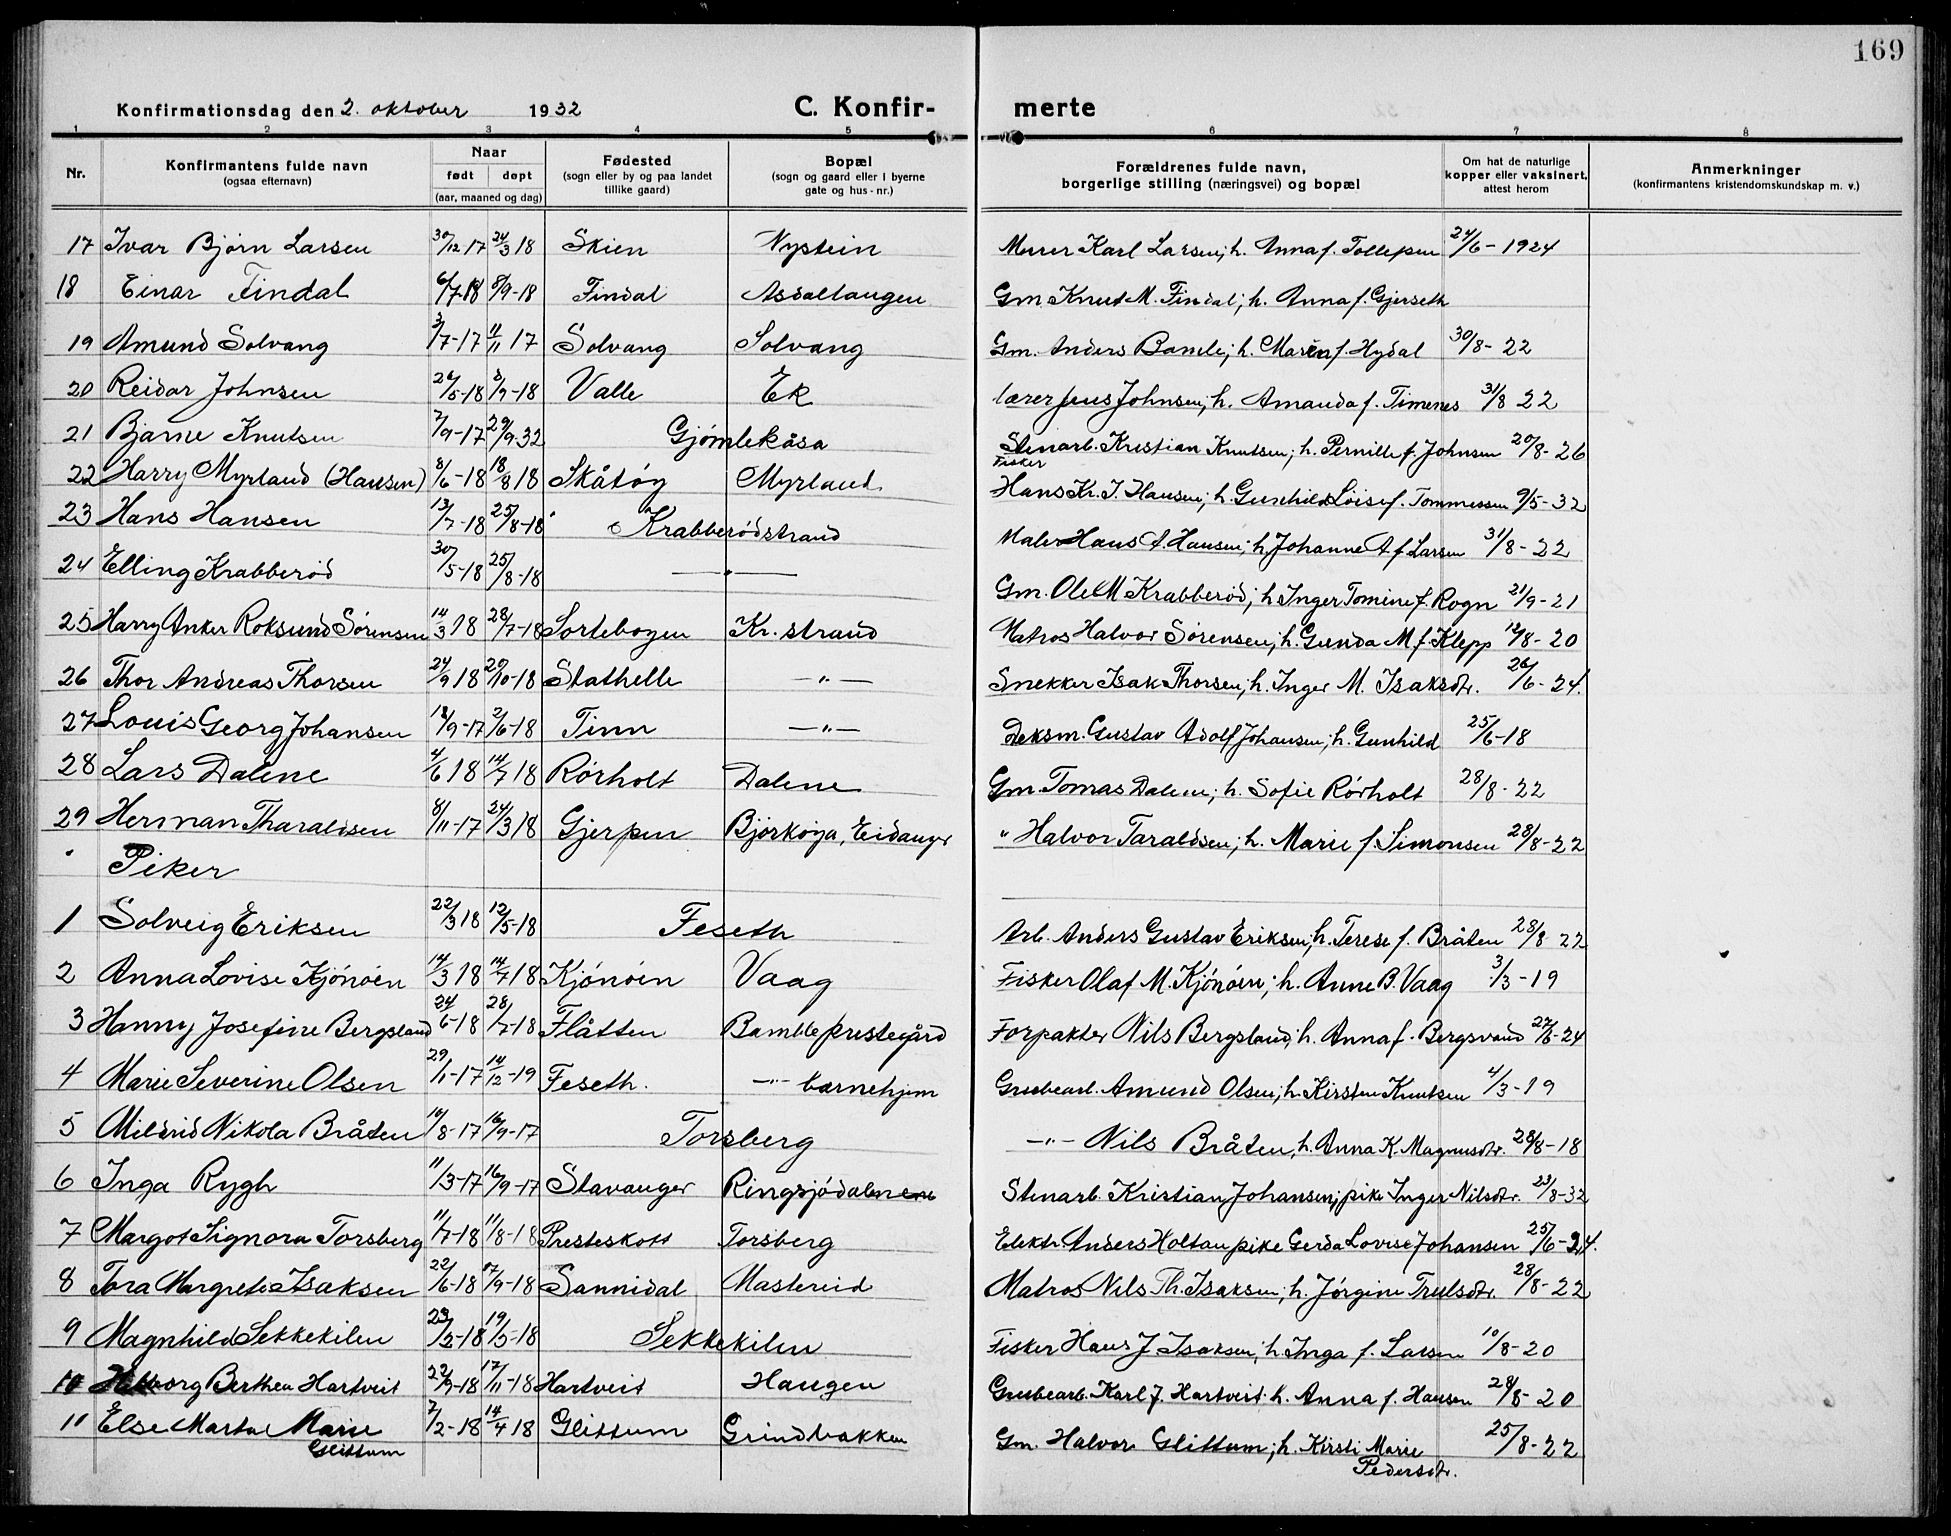 169
Konfirmationsdag den 2. oktober 1932 C. Konfirmerte
1 2 3 4 5 6 7 8
Nr. Konfirmantens fulde navn (ogsaa efternavn) Naar født døpt (aar, maaned og dag) Fødested (sogn eller by og paa landet tillike gaard) Bopæl (sogn og gaard eller i byerne gate og hus-nr.) Forældrenes fulde navn, borgerlige stilling (næringsvei) og bopæl Om hat de naturlige kopper eller vaksinert, attest herom Anmerkninger (konfirmantens kristendomskundskap m. v.)
17 Ivar Bjørn Larsen 30/12-17 24/3 18 Skien Nystein Murer Karl Larsen; h. Anna f. Tollefsen 24/6-1924
18 Einar Findal 6/7-18 8/9-18 Findal Asdaltangen Gm. Knut M. Findal; h. Anna f. Gjerseth
19 Amund Solvang 3/7-17 11/11 17 Solvang Solvang Gm. Anders Bamle; h. Maren f. Hydal 30/8-22
20 Reidar Johnsen 26/5-18 8/9-18 Valle Ek lærer Jens Johnsen; h. Amanda f. Timenes 31/8 22
21 Bjarne Knutsen 7/9-17 29/9-32 Gjømlekåsa Stenarb. Kristian Knutsen; h. Pernille f. Johnsen 20/8-26
22 Harry Myrland (Hansen) 8/6-18 18/8 18 Skåtøy Myrland Fisker Hans Kr. J. Hansen; h. Gunhild Loise f. Tommessen 9/5-32
23 Hans Hansen 13/7-18 25/8-18 Krabberødstrand Maler Hans A. Hansen; h. Johanne A f. Larsen 31/8-22
24 Elling Krabberød 30/5-18 25/8-18 —"— Gm. Ole M Krabberød; h. Inger Tomine f. Rogn 21/9-21
25 Harry Anker Roksund Sørensen 14/3 18 28/7-18 Sortebogen Kr. strand Matros Halvor Sørensen; h. Gunda M f. Klepp 12/8-20
26 Thor Andreas Thorsen 24/9 18 20/10-18 Stathelle —"— Snekker Isak Thorsen; h. Inger M. Isaksdtr. 26/6-24.
27 Louis Georg Johansen 12/9-17 2/6-18 Tinn —"— Deksm. Gustav Adolf Johansen; h. Gunhild 25/6-18
28 Lars Dalene 4/6 18 14/7 18 Rørholt Dalene Gm. Tomas Dalene; h. Sofie Rørholt 28/8-22
29 Herman Tharaldsen 8/11-17 24/3 18 Gjerpen Bjørkøya, Eidanger " Halvor Taraldsen; h. Marie f. Simonsen 28/8-22
Piker
1 Solveig Eriksen 22/3 18 12/5-18 Feseth Arb. Anders Gustav Eriksen; h. Terese f. Bråten 28/8 22
2 Anna Lovise Kjønøen 14/3 18 14/7 18 Kjønøen Vaag Fisker Olaf M. Kjønøen; h. Anne B. Vaag 3/3-19
3 Hanny Josefine Bergsland 24/6-18 28/7-18 Flåtten Bamble prestegård Forpakter Nils Bergsland; h. Anna f. Bergsvand 27/6-24
4 Marie Severine Olsen 29/11-17 14/12-19 Feseth. —"— barnehjem Grubearb. Amund Olsen; h. Kirsten Knutsen 4/3-19
5 Mildrid Nikola Bråten 10/8-17 16/9-17 Torsberg —"— Nils Bråten, h. Anna K. Magnusdtr. 28/8-18
6 Inga Rygh 11/3-17 16/9-17 Stavanger Ringsjødalen Stenarb. Kristian Johansen; pike Inger Nilsdtr. 23/8-32
7 Margot Signora Torsberg 11/7-18 11/8-18 Presteskott Torsberg Elektr. Anders Holtan pike Gerda Lovise Johansen 25/6-24.
8 Tora Margrete Isaksen 22/6-18 07/9-18 Sannidal Mastereid Matros Nils Th. Isaksen; h. Jørgine Trulsdtr. 28/8-22
9 Magnhild Sekkekilen 23/2-18 19/5-18 Sekkekilen Fisker Hans J. Isaksen; h. Inga f. Larsen 10/8-20
10 Berthea Hartveit 22/9-18 17/11-18 Hartveit Haugen Grubearb. Karl J. Hartveit h. Anna f. Hansen 28/8-20
11 Else Marta Marie Glittum 7/2-18 14/4 18 Glittum Grindbakken Gm. Halvor Glittum; h. Kirsti Marie Pedersdtr. 25/8-22